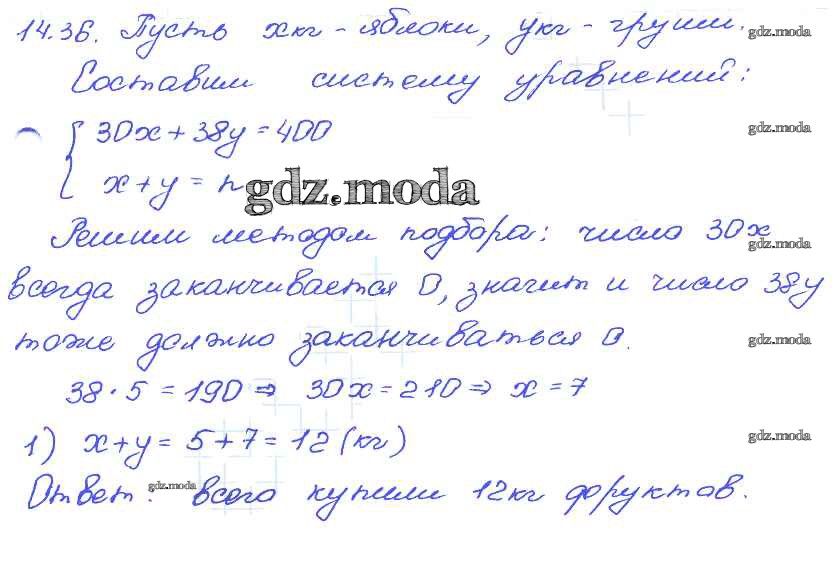 14.36. Пусть x кг - яблоки, y кг - груши. gdz.moda
Составим систему уравнений:
30x + 38y = 400 gdz.moda
x + y = n gdz.moda
Решим методом подбора: число 30x gdz.moda
всегда заканчивается 0, значит и число 38y
тоже должно заканчиваться 0. gdz.moda
38 · 5 = 190 ⇒ 30x = 210 ⇒ x = 7
1) x + y = 5 + 7 = 12 (кг) gdz.moda
Ответ: gdz.moda всего купили 12 кг фруктов.